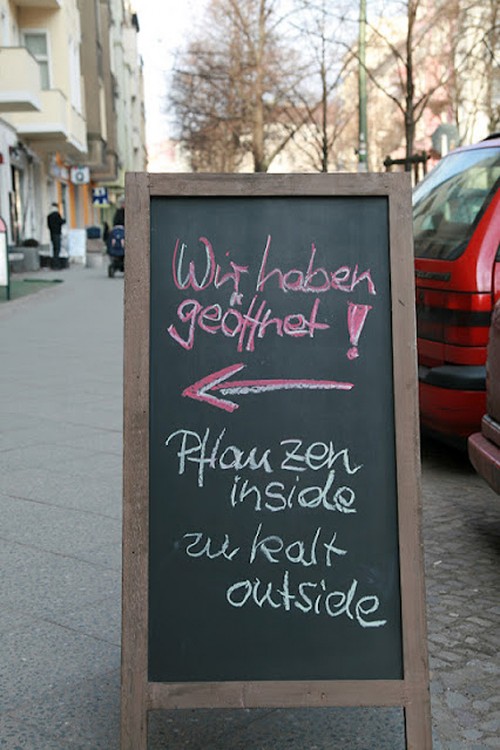 Wir haben
geöffnet!
Pflanzen
inside
zu kalt
outside